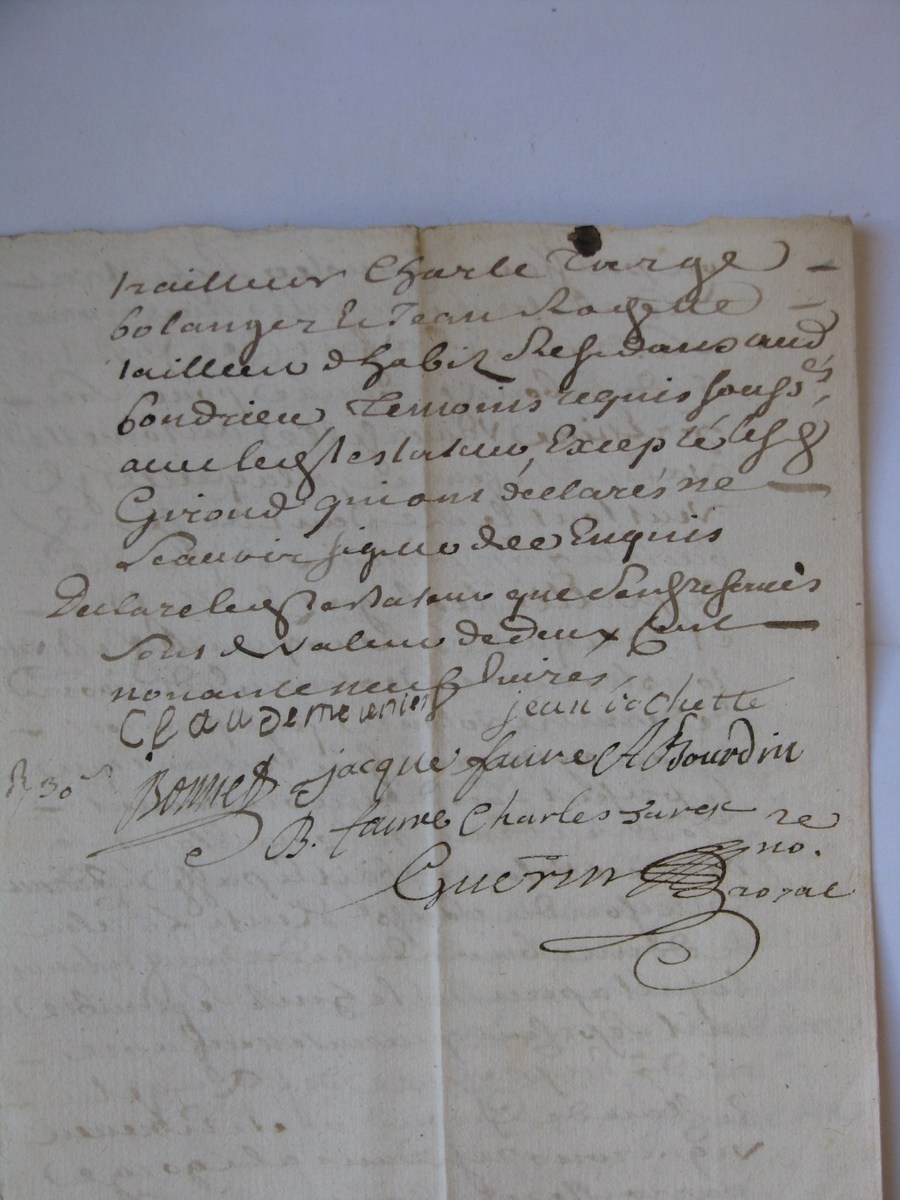 trailleur Charle Targe
bolanger & Jean Rochette
tailleur dhabit Residans aud
Condrieu Temoins requis sousés
avec led testateur Excepté led
Giroud qui ont déclarés ne
scauoir signer de ce Enquis
Declare led testateur que Ses
sont de valeur de deux Cent
nonante neuf livres
Claude meunier jean rochette
Bonnet jacque faure A Bourdin
B. faure Charles Targe
Guerin no. re
royal